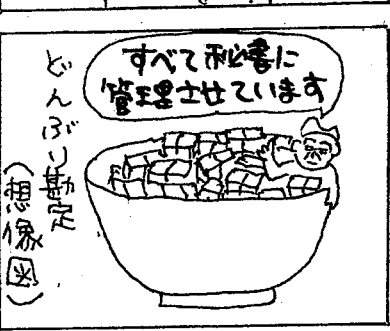 すべて秘書に
管理させています
どんぶり勘定
(想像図)